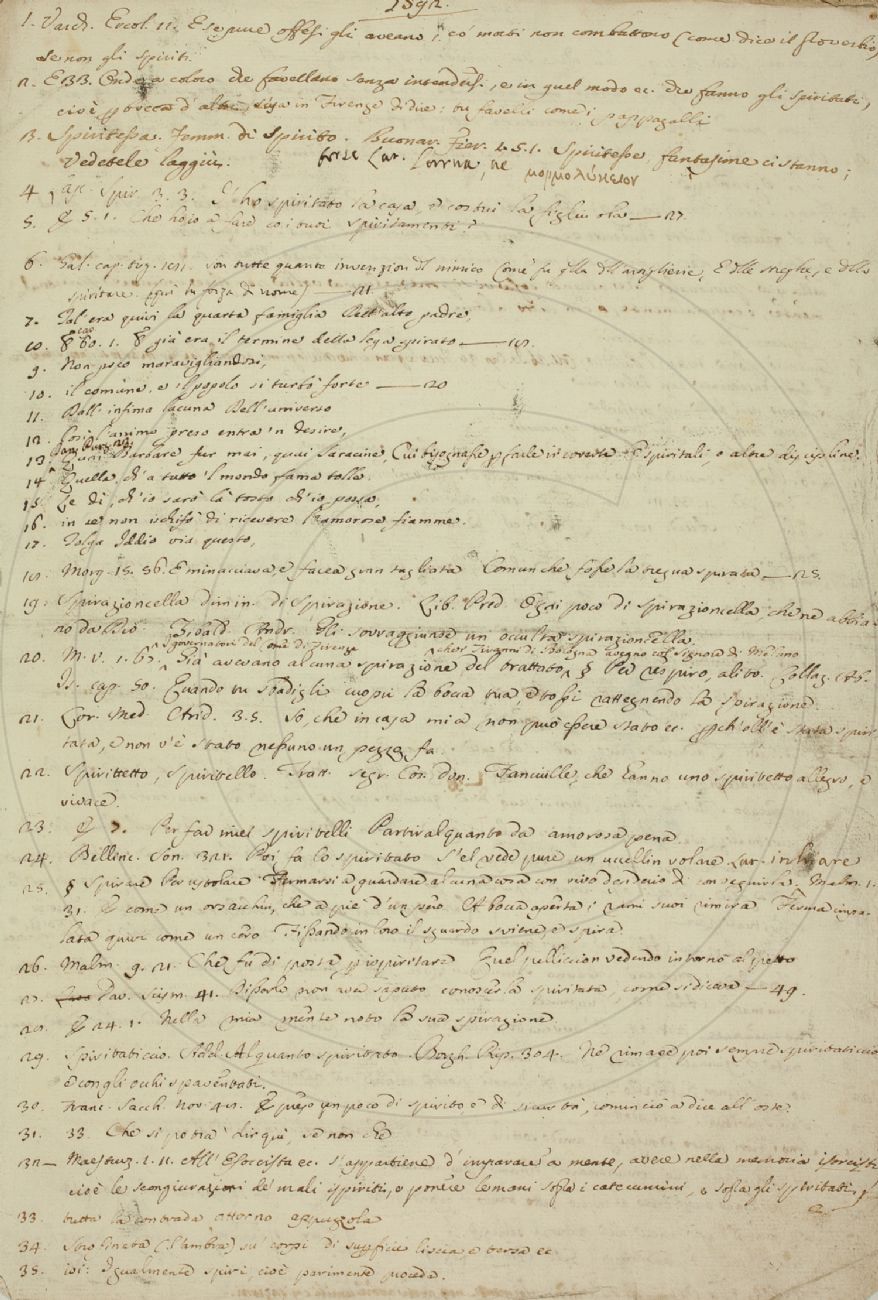 1892.
1. Varch. Ercol. 11. E se pure offesi gli aveano, co' morti non combattono (come dice il Proverbio)
se non gli spiriti.
2. E 33. Onde a coloro che favellano senza intendersi, e in quel modo ec. che fanno gli spiritati,
cioè p bocca d'altri, si usa in Firenze di dire: tu favelli come i pappagalli
3. Spiritessa. Femm. di Spirito. Buonar. Fier. 4. 5. 1. Spiritesse, fantasime ci stanno;
Vedetele laggiù. forse Lat. μορμολύκειον
4 3. 3. E' ho spiritato la casa, e costui la figliuola — 27.
5. E 5. 1. Che ho io a fare co i tuoi spiritamenti?
6. Gal. cap. tog. son tutte quante invenzion del nimico Come fu quella dell' artiglierie, E delle streghe, e dello
spiritare (qui in forza di nome)
7. Tal era quivi la quarta famiglia Dell'alto padre,
60. 1. E già era il termine della lega spirato
9. Non poco maravigliandosi,
10. il comune, e il popolo si turbò forte — 20
11. Dall' infima lacuna Dell'universo
12. Così l'animo preso entra 'n desire,
13 Barbare fur mai, quai Saracine, Cui bisognasse p farle ir coverte O spiritali, o altre discipline.
14 Quella, ch' a tutto 'l mondo fama tolle
15 Le di, ch'io sarò là tosto ch'io possa,
16. in se non ischifò di ricevere l'amorose fiamme.
17. Tolga Iddio via questo,
Morg. 15. 36. E minacciava, e facea gran tagliata Comunche fosse la tregua spirata — 25.
19. Spirazioncella dimin. di Spirazione. Lib. Pred. Ogni poco di spirazioncella, che ne abbia-
no da Dio. Tratt. Gli sovraggiunse un occulta spirazioncella.
20. M. V. 1. 6 Già avevano alcuna spirazione del trattato § Per respiro, alito. Collaz.
cap. 50. Quando tu sbadigli cuopri la bocca tua, e tossi rattegnendo la spirazione.
21. Cor. Med. 3. 5. So, che in casa mia non può essere stato ec. pch' ell' è stata spiri-
tata, e non v'è stato nessuno un pezzo fa.
22. Spirittetto, spiritello. Tratt. segr. Cos. don. Fanciulle, che hanno uno spiritetto allegro, e
vivace.
23: E 7. Per far miei spiritelli Partir alquanto da amorosa pena
24. Bellinc. Son. 321. Poi fa lo spiritato S'el vede pure un uccellin volare Lat. inhiare
25. § Spirare Per Fermarsi a guardare alcuna cosa con vivo desiderio di conseguirla. Malm. 1.
31. E come un orsacchin, che a piè d'un pero A bocca aperta i rami suoi rimira Ferma impa-
lata quivi come un cero Fissando in loro il sguardo sviene, e spira.
26. Malm. 9. 21. Che fu di posta p ispiritare Quel pelliccion vedendo intorno al petto
27. Dav. Scism. 41. Disserlo non aver saputo conoscer la spiritata, come si dicea — 49.
E 24. 1. Nella mia mente noto la sua spirazione
29. Spiritaticcio. Add. Alquanto spiritato. Borgh. Rip. 304. Ne rimase poi sempre spiritaticcio
e con gli occhi spaventati.
30. Franc. Sacch. Nov. E preso un poco di spirito e di sicurtà, cominciò a dire all' oste.
31. 33. Che si potrà dir quì, se non che
Maestruz. 1. 11. All' Esorcista ec. s'appartiene d'imparare a mente, avere nella memoria
cioè le scongiurazioni de' mali ispiriti, o ponere le mani sopra i catecumini, o sopra gli spiritati.
33. tutta la contrada attorno appuzzola
34. Strofinata (l'ambra) su' corpi di superficie liscia e tersa ec.
35. ivi: Igualmente spiri, cioè parimente proceda.